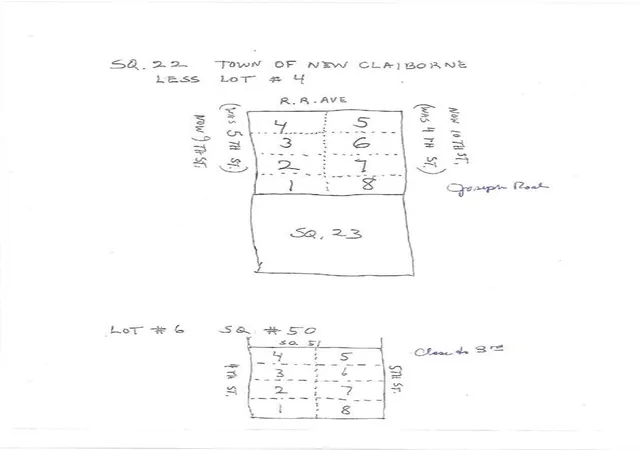 SQ. 22 TOWN OF NEW CLAIBORNE
LESS LOT # 4
R.R. AVE
NOW 9TH ST.
(WAS 5TH ST.)
4 5
3 6
2 7
1 8
(WAS 4TH ST.)
NOW 10TH ST.
Joseph
SQ. 23
LOT # 6 SQ #50
SQ 51
4TH ST.
4 5
3 6
2 7
1 8
5TH ST.
Close to 3rd